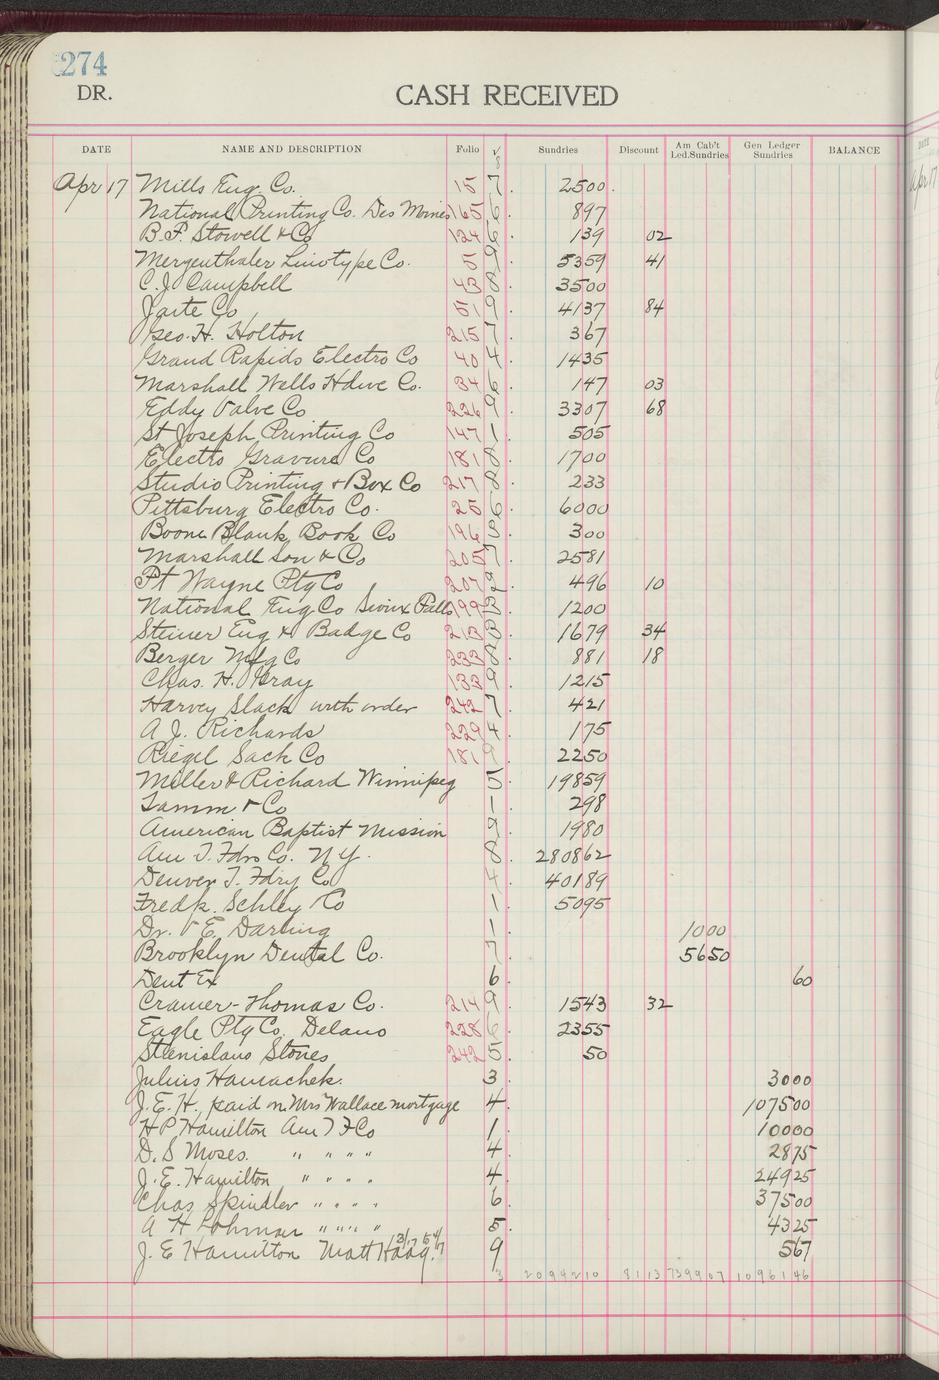 274
DR.
CASH RECEIVED
DATE NAME AND DESCRIPTION Folio √ 8 Sundries Discount Am Cab't Led.Sundries Gen Ledger Sundries BALANCE
Apr 17 Mills Eng. Co. 15 7. 2500.
National Printing Co. Des Moines 165 6. 897
B.F. Stowell & Co 124 6. 139 02
Mergenthaler Linotype Co. 5 9. 5359 41
C.J. Campbell 43 8. 3500
Jaite Co 51 9. 4137 84
Geo. H. Holton 215 7. 367
Grand Rapids Electro Co 40 4. 1435
Marshall Wells Hdwe Co. 84 6. 147 03
Eddy Valve Co 226 9. 3307 68
St Joseph Printing Co 147 1. 505
Electro Gravure Co 181 8. 1700
Studio Printing & Box Co 217 8. 233
Pittsburg Electro Co. 25 6. 6000
Boone Blank Book Co 196 8. 300
Marshall Son & Co 205 7. 2581
Ft Wayne Ptg Co 207 2. 496 10
National Eng Co Sioux Falls 199 3. 1200
Steiner Eng & Badge Co 213 3. 1679 34
Berger Mfg Co 232 8. 881 18
Chas. H. Gray 133 9. 1215
Harvey Slack with order 242 7. 421
A J. Richards 229 4. 175
Riegel Sack Co 181 9. 2250
Miller & Richard Winnipeg 5. 19859
Tamm & Co 1. 298
American Baptist Mission 9. 1980
Am T. Fdrs Co. N.Y. 8. 280862
Denver T. Fdry Co 4. 40189
Fredk. Schley Co 1. 5095
Dr. V E. Darling 1. 1000
Brooklyn Dental Co. 7. 5650
Dent Ex 6 60
Cramer-Thomas Co. 214 9. 1543 32
Eagle Ptg Co. Delano 228 6. 2355
Stenislaus Stones 242 5. 50
Julius Hamachek. 3. 3000
J.E.H. paid on Mrs Wallace mortgage 4. 107500
H P Hamilton Am T F Co 1. 10000
D. S Moses. " " " " 4. 2875
J. E. Hamilton " " " " 4. 24925
Chas Spindler " " " " 6. 37500
A H Lohman " " " " 5. 4325
J. E Hamilton Matt Haag. 9 567
3 2094210 8113 739907 1096146